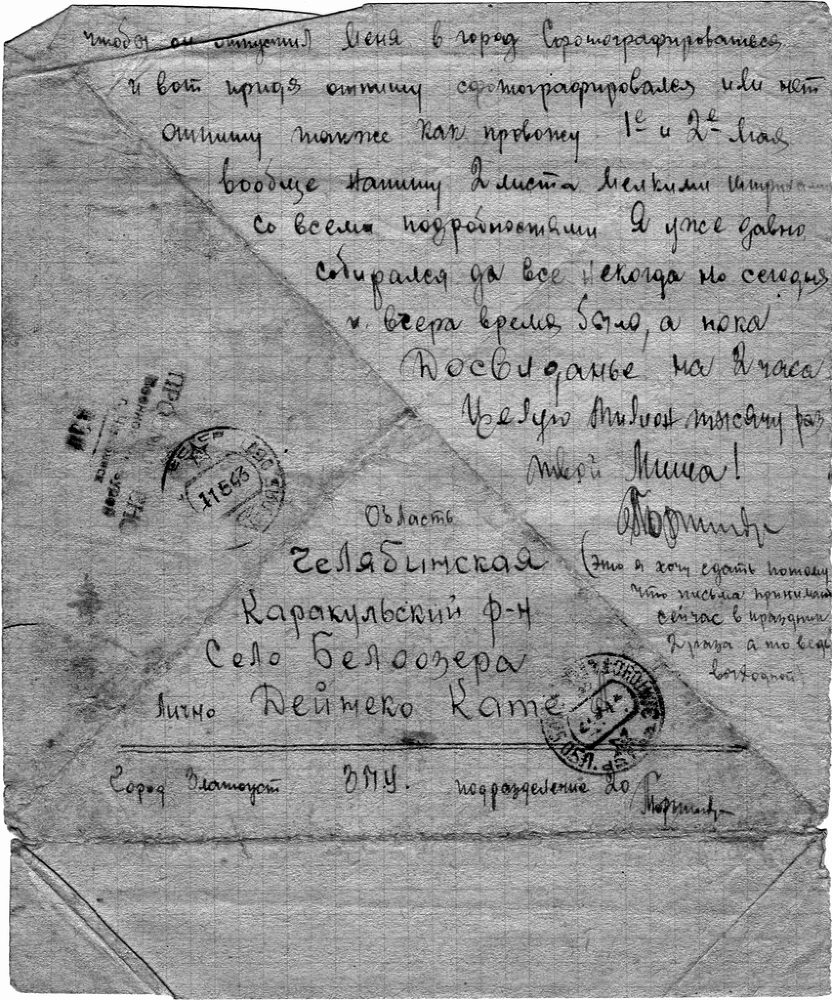 чтобы он отпустил меня в город сфотографироваться
и вот придя отпишу сфотографировался или нет
отпишу также как провожу 1е и 2е мая
вообще напишу 2 листа мелкими
со всеми подробностями Я уже давно
собирался да все некогда но сегодня
и вчера время было, а пока
Досвиданье на 2 часа
Целую милион тысячу раз
твой Миша!
(Это я хочу сдать потому
что письма принимают
сейчас в праздник
2 раза а то ведь
выходной)
Область
Челябинская
Каракульский р-н
Село Белоозера
Лично Дейнеко Кате
Город Златоуст ЗПУ. подразделение 20
11 5 43